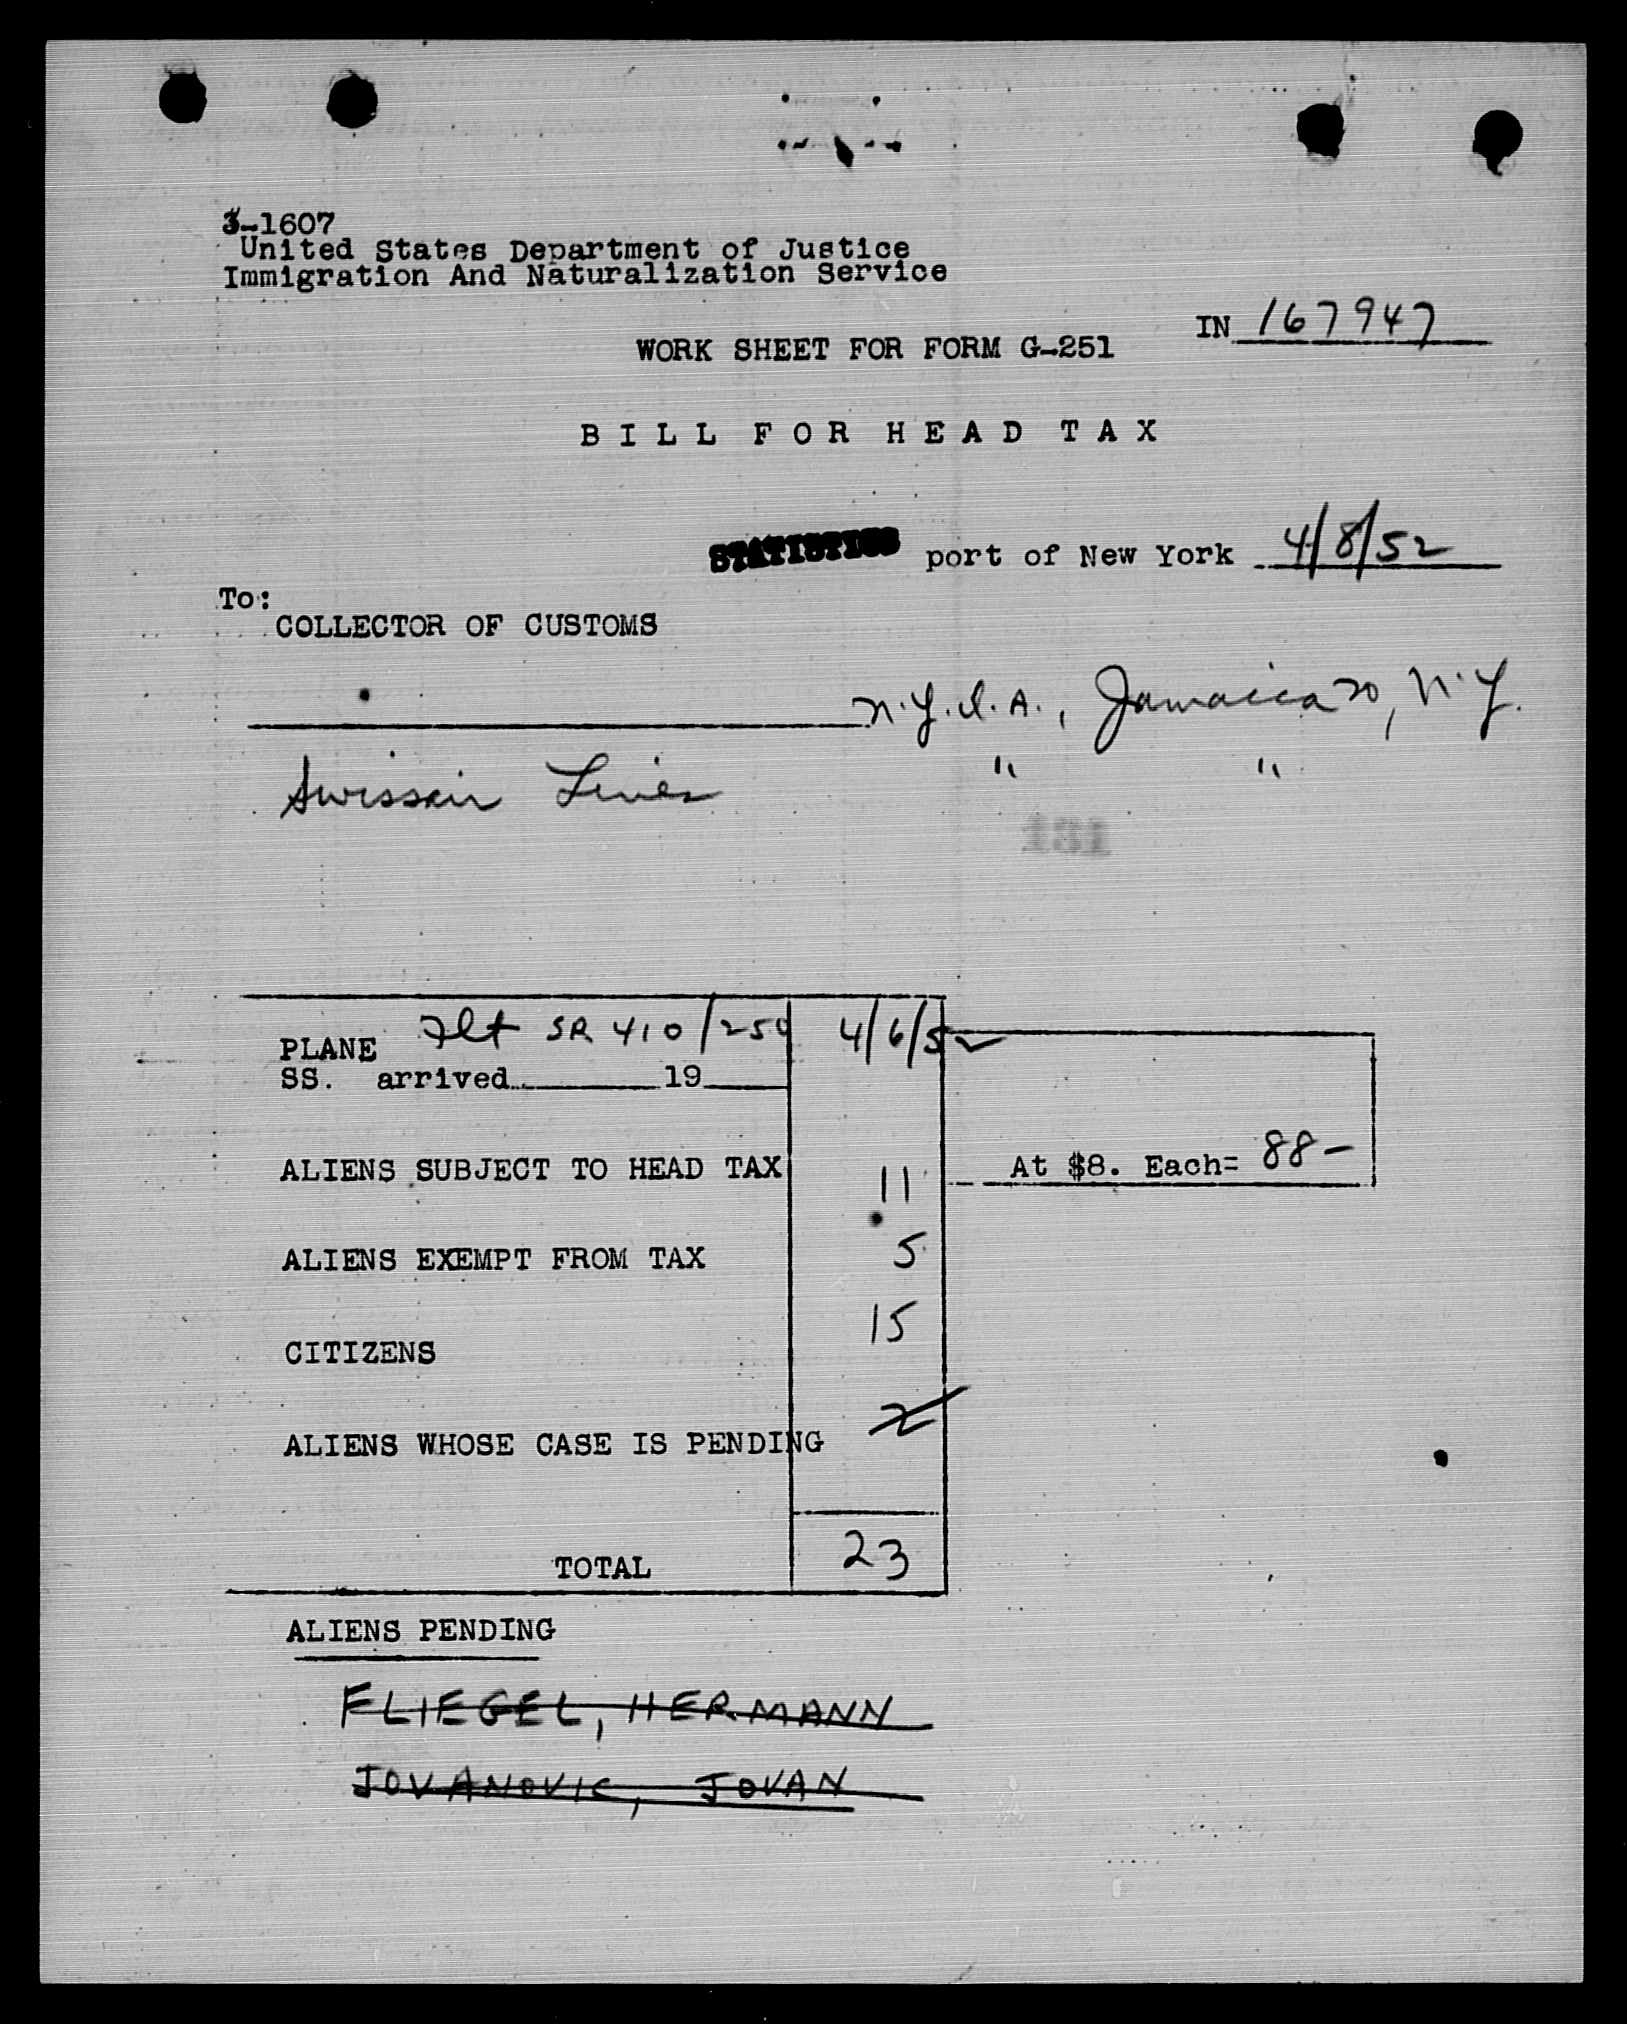 3-1607
United States Department of Justice
Immigration And Naturalization Service
IN 167947
WORK SHEET FOR FORM G-251
BILL FOR HEAD TAX
STATISTICS port of New York 4/8/52
To:
COLLECTOR OF CUSTOMS
N.Y.I.A., Jamaica 30, N.Y.
Swissair Lines " "
131
PLANE Flt SR 410/250 4/6/52
SS. arrived 19
ALIENS SUBJECT TO HEAD TAX 11 At $8. Each= 88-
ALIENS EXEMPT FROM TAX 5
CITIZENS 15
ALIENS WHOSE CASE IS PENDING 2
TOTAL 23
ALIENS PENDING
FLIEGEL, HERMANN
JOVANOVIC, JOVAN